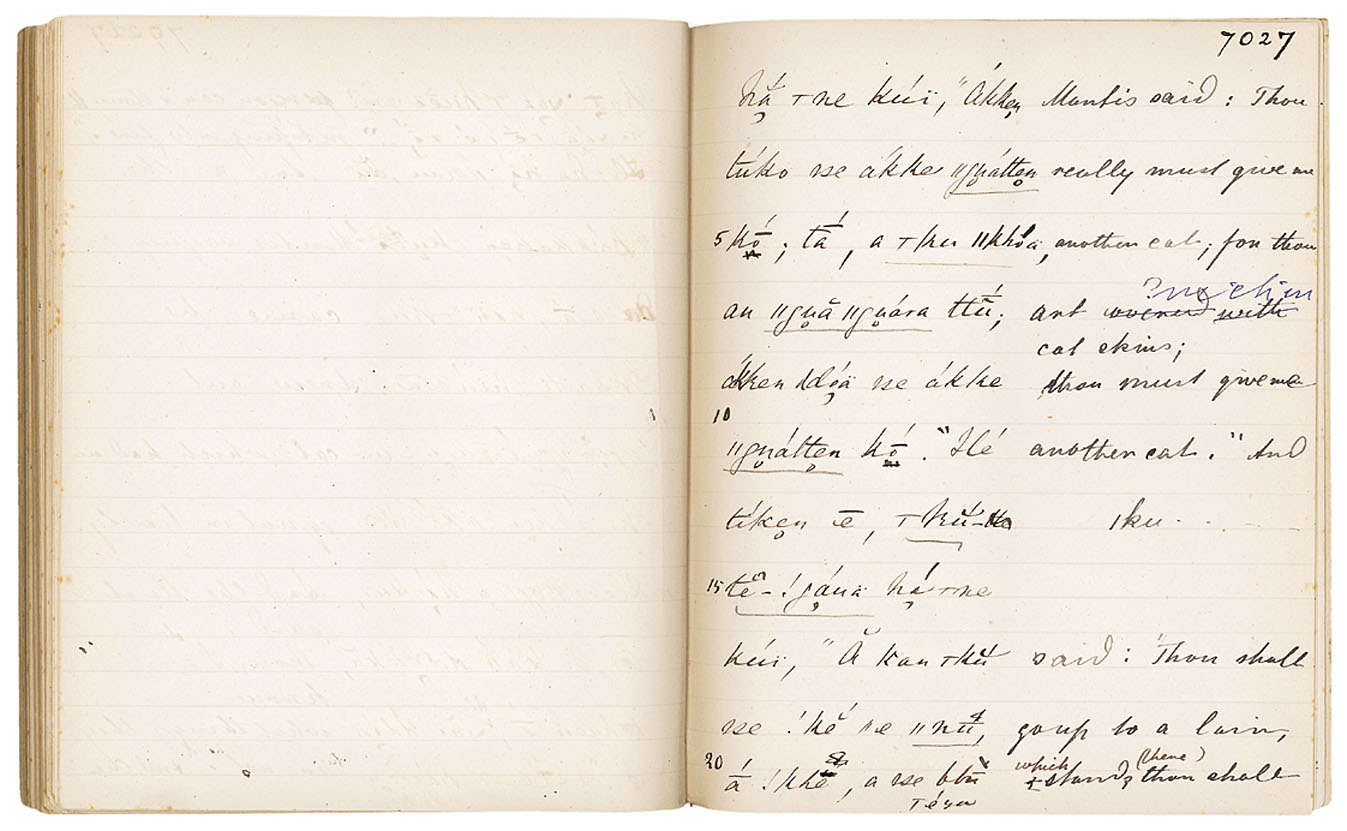 7027
hắ ̣ꞇne kúï, "Ákkẹn Mantis said: Thou
túko se ákke ǁgṷáttẹn really must give me
5 kṓ; tā́, a ꞇku ǁkhóä, another cat; for thou
au ǁgṷă ǁgṷára ttū́; art covered with ? rich in
cat skins;
ákken ddóä se ákke thou must give me
10
ǁgṷáttẹn kṓ." Hé another cat." And
tíkẹn ē, ꞇkŭ- ꞁku
15 tĕ-!gáua hắ ꞇne
kúï, "Ă kan ꞇkŭ said: Thou shalt
se !ké ǁnū́, go up to a lair,
20 ā́ !khĕ, a se which stands (there) thou shalt
ꞇéṅa